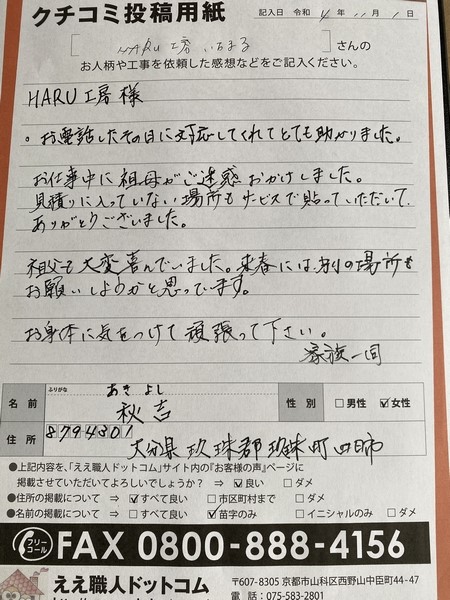 クチコミ投稿用紙
記入日 令和 4 年 11 月 1 日
[ HARU工房 いちまる ] さんの
お人柄や工事を依頼した感想などをご記入ください。
HARU工房 様
。お電話したその日に対応してくれてとても助かりました。
お仕事中に祖母がご迷惑おかけしました。
見積りに入っていない場所もサービスで貼っていただいて、
ありがとうございました。
祖父も大変喜んでいました。来春には、別の場所も
お願いしようかと思っています。
お身体に気をつけて頑張って下さい。
家族一同
名前 ふりがな あきよし
秋吉
性別 □男性 ☑女性
住所 8794301
大分県玖珠郡玖珠町四日市
●上記内容を、「ええ職人ドットコム」サイト内の『お客様の声』ページに
掲載させていただいてよろしいでしょうか? ⇒ ☑良い □ダメ
●住所の掲載について ⇒ ☑すべて良い □市区町村まで □ダメ
●名前の掲載について ⇒ □すべて良い ☑苗字のみ □イニシャルのみ □ダメ
フリーコール FAX 0800-888-4156
ええ職人ドットコム
〒607-8305 京都市山科区西野山中臣町44-47
電話:075-583-2801